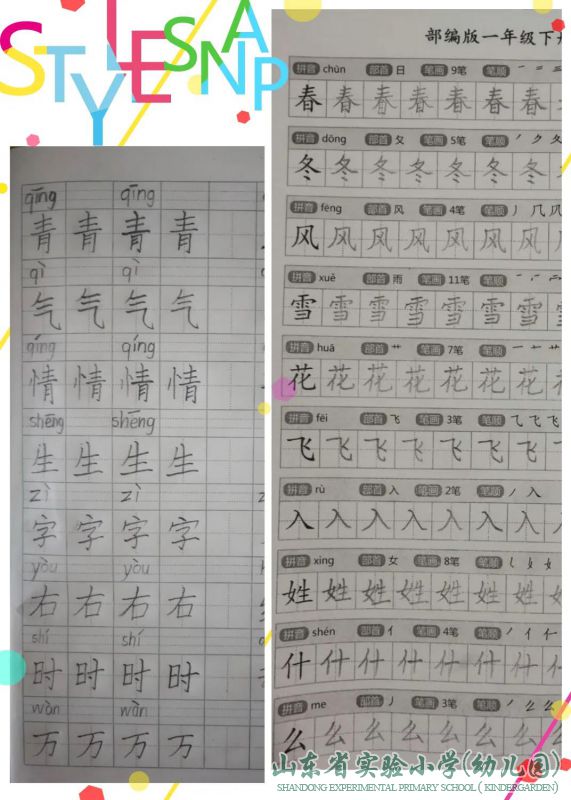 STYLE SNAP
qīng qīng
青 青 青 青
qì qì
气 气 气 气
qíng qíng
情 情 情 情
shēng shēng
生 生 生 生
zì zì
字 字 字 字
yòu yòu
右 右 右 右
shí shí
时 时 时 时
wàn wàn
万 万 万 万
部编版一年级下
拼音 chūn 部首 日 笔画 9笔 笔顺
春 春 春 春 春 春 春
拼音 dōng 部首 夂 笔画 5笔 笔顺
冬 冬 冬 冬 冬 冬 冬
拼音 fēng 部首 风 笔画 4笔 笔顺
风 风 风 风 风 风 风
拼音 xuě 部首 雨 笔画 11笔 笔顺
雪 雪 雪 雪 雪 雪 雪
拼音 huā 部首 艹 笔画 7笔 笔顺
花 花 花 花 花 花 花
拼音 fēi 部首 飞 笔画 3笔 笔顺
飞 飞 飞 飞 飞 飞 飞
拼音 rù 部首 入 笔画 2笔 笔顺 丿 入
入 入 入 入 入 入 入
拼音 xìng 部首 女 笔画 8笔 笔顺
姓 姓 姓 姓 姓 姓 姓
拼音 shén 部首 亻 笔画 4笔 笔顺
什 什 什 什 什 什 什
拼音 me 部首 丿 笔画 3笔 笔顺
么 么 么 么 么 么 么
山东省实验小学(幼儿园)
SHANDONG EXPERIMENTAL PRIMARY SCHOOL ( KINDERGARTEN)